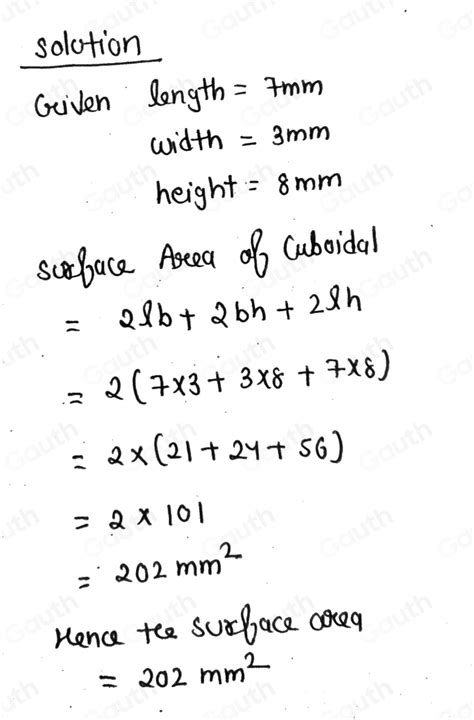 solution
Given length = 7mm
width = 3mm
height = 8mm
surface Area of Cuboidal
= 2lb + 2bh + 2lh
= 2(7×3 + 3×8 + 7×8)
= 2×(21 + 24 + 56)
= 2 × 101
= 202 mm²
Hence the surface area
= 202 mm²